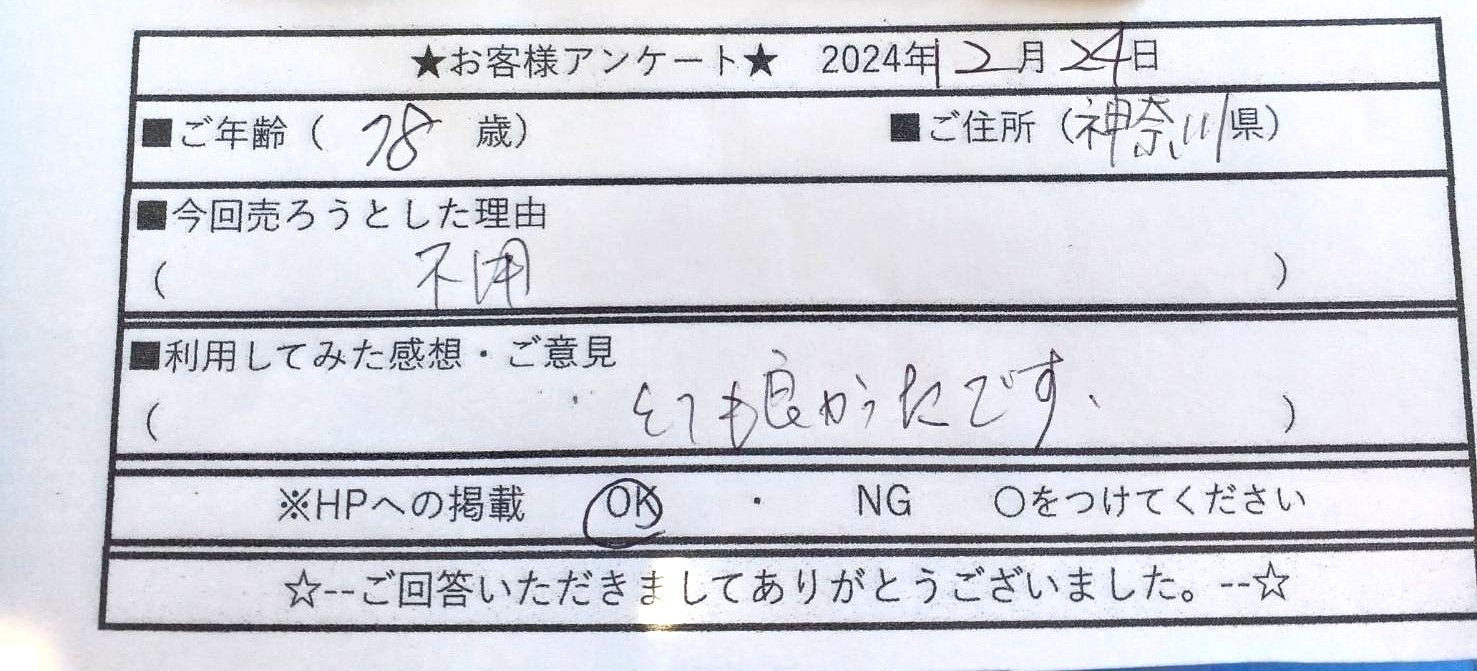 ★お客様アンケート★ 2024年12月24日
■ご年齢（ 78 歳） ■ご住所（神奈川県）
■今回売ろうとした理由
（ 不用 ）
■利用してみた感想・ご意見
（ とても良かったです、 ）
※HPへの掲載 OK ・ NG ○をつけてください
☆--ご回答いただきましてありがとうございました。--☆